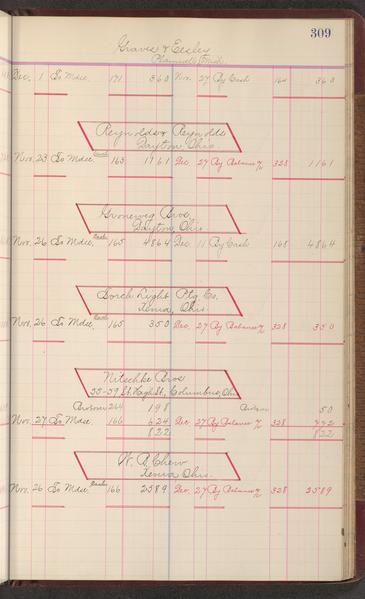 309
Graves & Eesley
Plainwell, Mich.
Dec. 1 To Mdse. 171 3 60 Nov. 27 By Cash 164 3 60
Reynolds & Reynolds
Dayton, Ohio.
Nov. 23 To Mdse. 163 17 61 Dec. 27 By Balance 328 11 61
Groneweg Bros.
Dayton, Ohio.
Nov. 26 To Mdse. 165 48 64 Dec. 11 By Cash 168 48 64
Torch Light Ptg. Co.
Xenia, Ohio.
Nov. 26 To Mdse. 165 3 50 Dec. 27 By Balance 328 3 50
Nitschke Bros
35-39 St. High St., Columbus, Ohio
264 1 98 50
Nov. 27 To Mdse. 166 6 24 Dec. 27 By Balance 328
8 22 8 22
W. B. Chew
Xenia, Ohio.
Nov. 26 To Mdse. 166 25 89 Dec. 27 By Balance 328 25 89